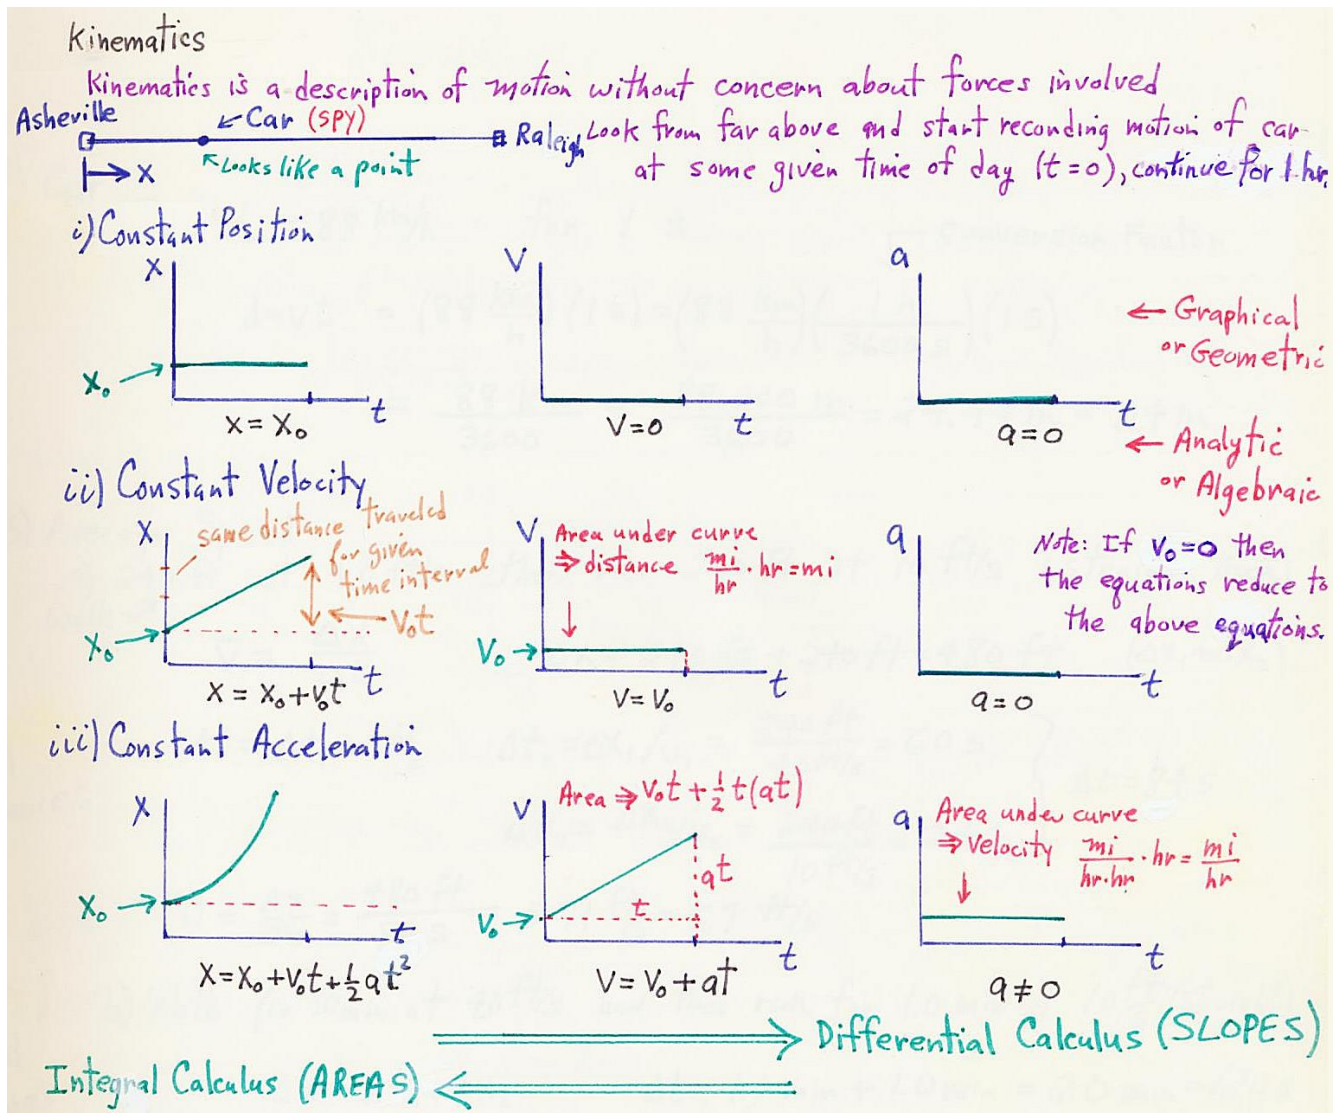 Kinematics
Kinematics is a description of motion without concern about forces involved
Asheville
← Car (SPY)
Raleigh
Look from far above and start recording motion of car
Looks like a point
at some given time of day (t=0), continue for 1 hr.
X
i) Constant Position
X
V
a
← Graphical
or Geometric
X₀ →
t
t
t
X = X₀
V=0
a=0
← Analytic
or Algebraic
ii) Constant Velocity
X
same distance traveled
for given
time interval
← V₀t
X₀ →
t
X = X₀+V₀t
V
Area under curve
⇒ distance mi/hr · hr = mi
V₀ →
t
V=V₀
a
t
a=0
Note: If V₀=0 then
the equations reduce to
the above equations.
iii) Constant Acceleration
X
X₀ →
t
X=X₀+V₀t+½at²
V
Area ⇒ V₀t + ½t(at)
at
t
V₀ →
t
V = V₀ + at
a
Area under curve
⇒ Velocity mi/hr·hr · hr = mi/hr
t
a ≠ 0
⟹ Differential Calculus (SLOPES)
Integral Calculus (AREAS) ⟸